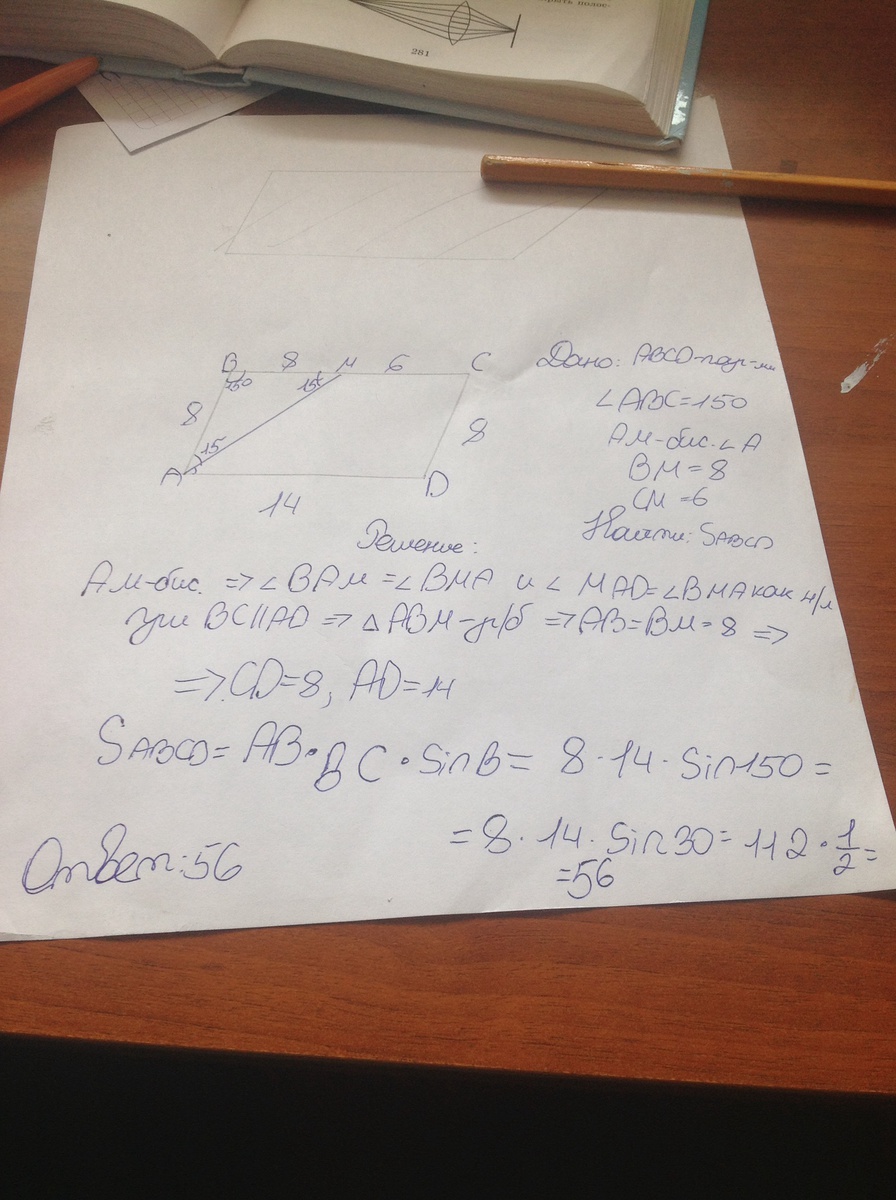 крыть полос-
281
B 8 M 6 C
150 15
8 15 8
A D
14
Дано: ABCD-пар-мм
∠ABC=150
AM-бис. ∠A
BM=8
CM=6
Найти: SABCD
Решение:
AM-бис. => ∠BAM=∠BMA и ∠MAD=∠BMA как н/л
при BC||AD => △ABM-р/б => AB=BM=8 =>
=> CD=8, AD=14
SABCD= AB·BC·sinB= 8·14·sin150=
=8·14·sin30=112·1/2=
=56
Ответ:56